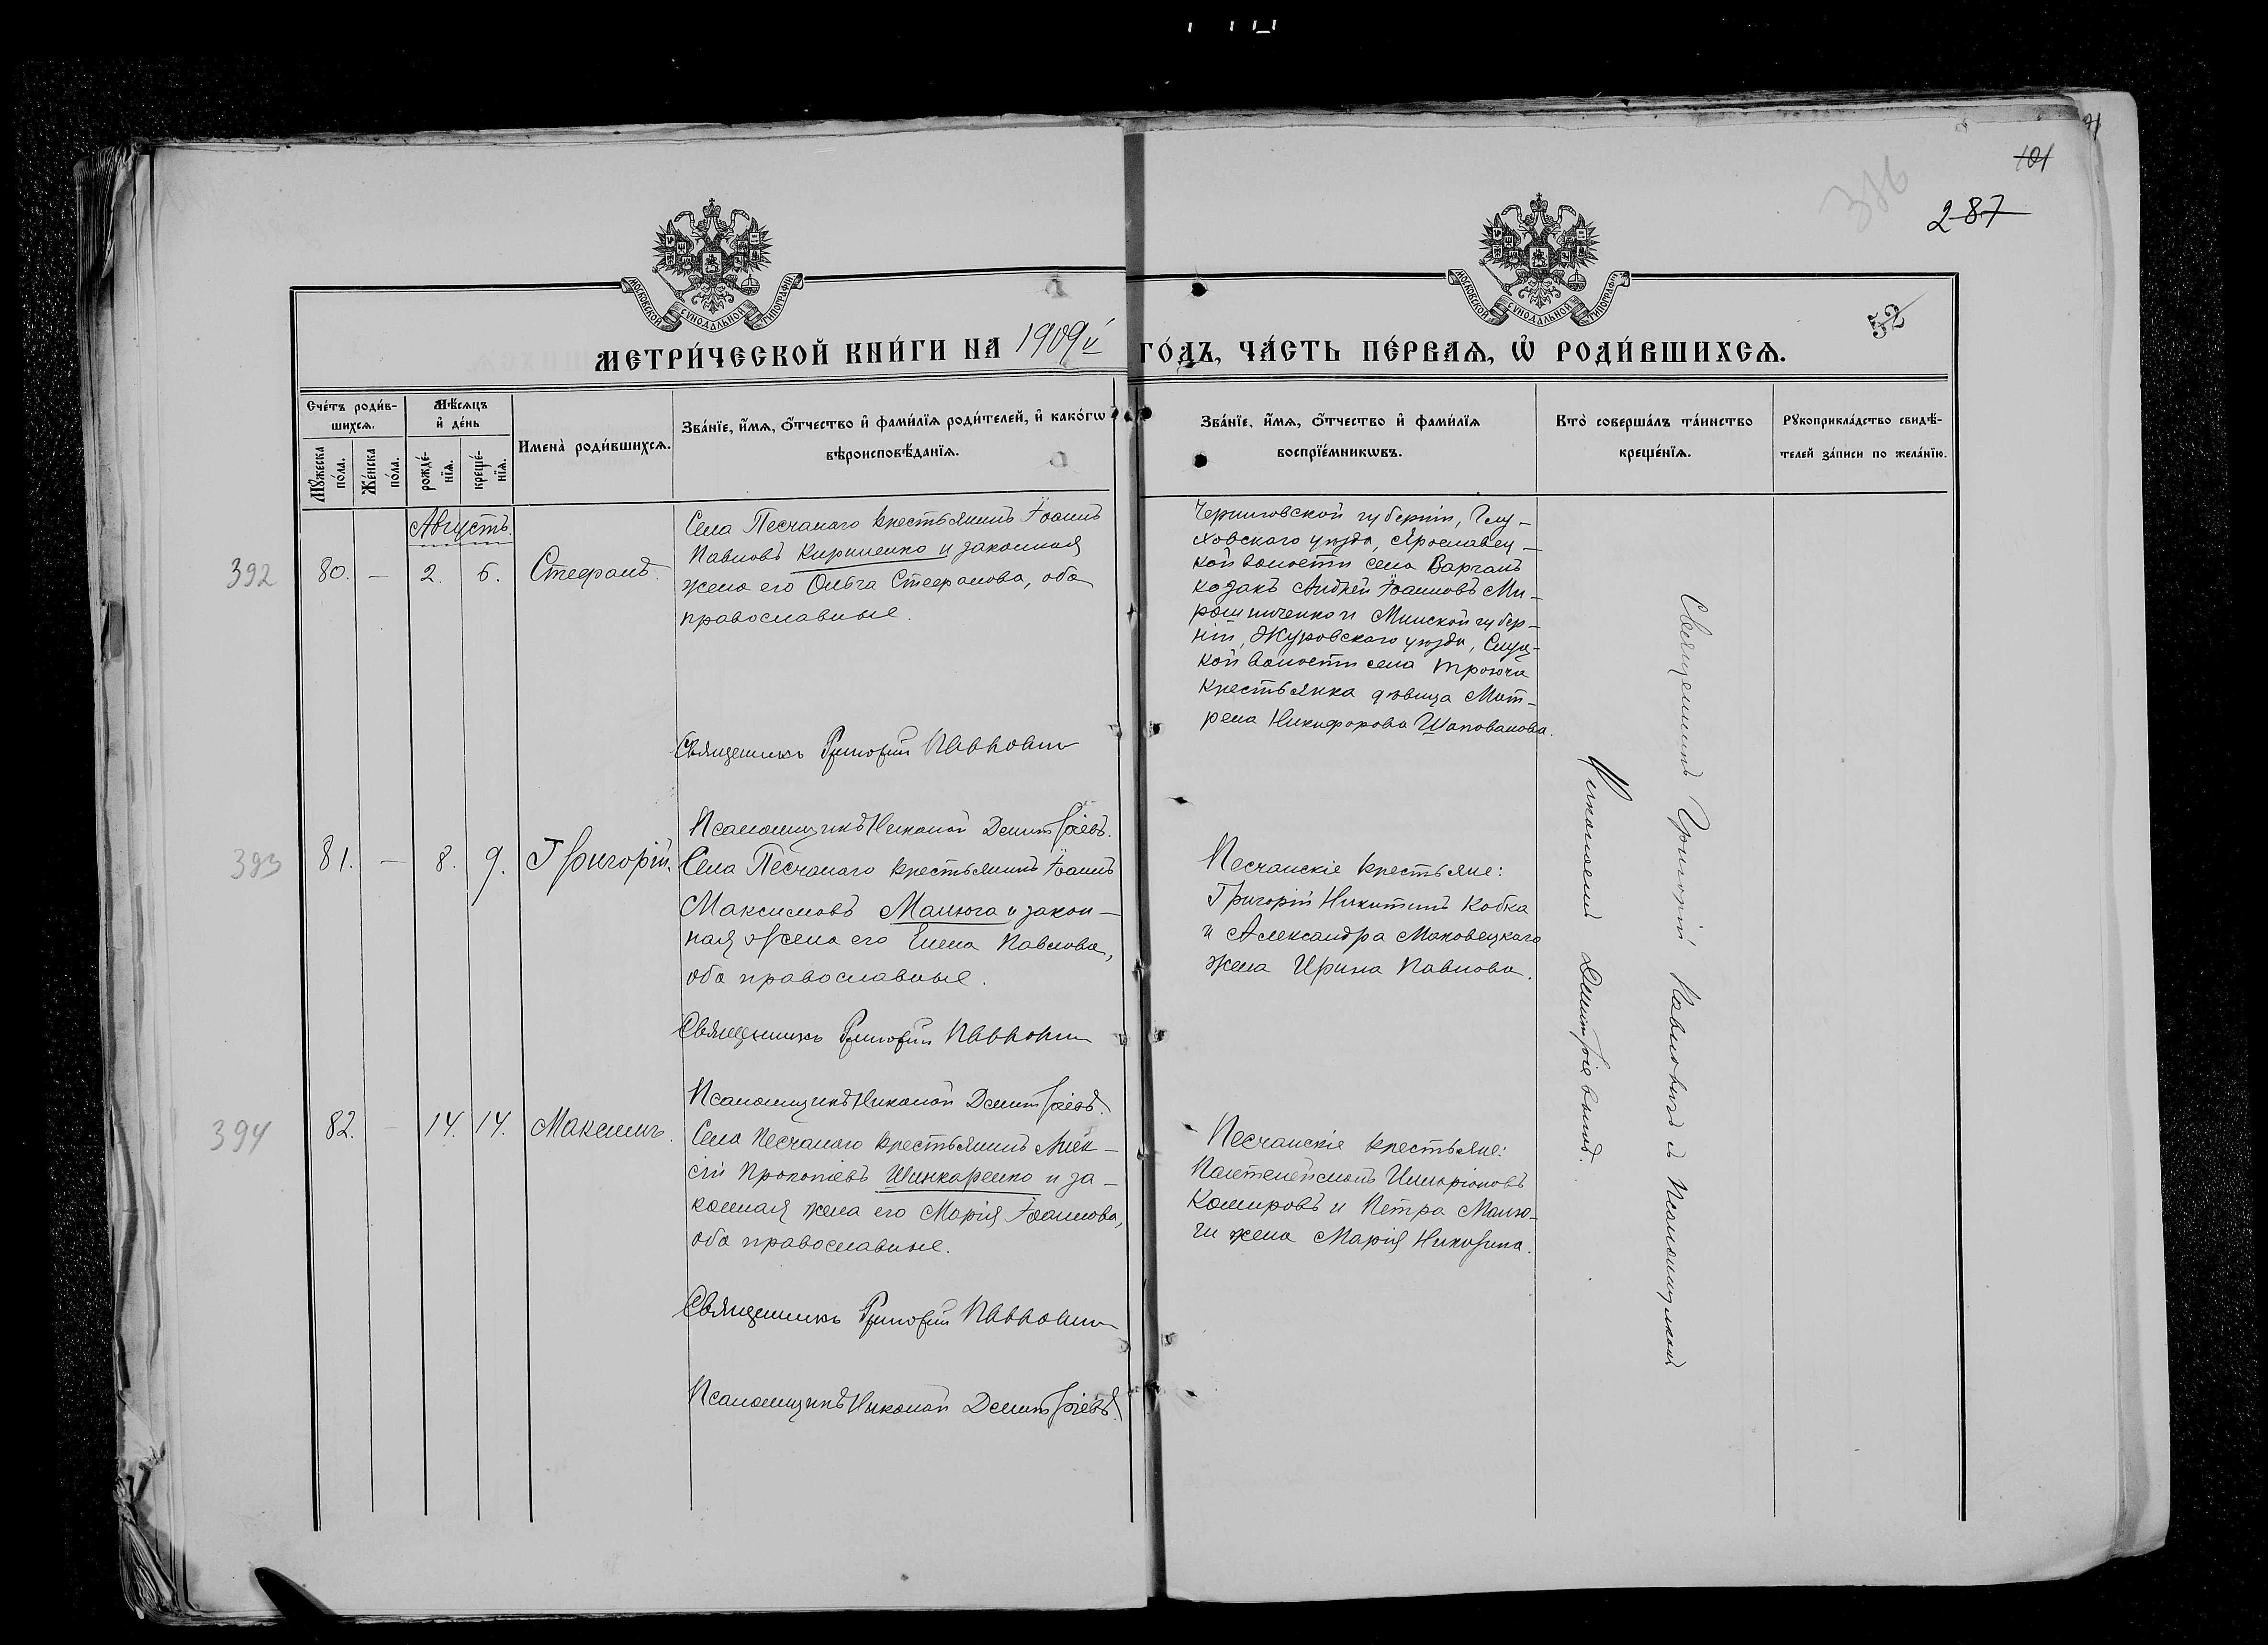 101
386
287
52
МОСКОВСКОЙ СѴНОДАЛЬНОЙ ТИПОГРАФІИ
МОСКОВСКОЙ СѴНОДАЛЬНОЙ ТИПОГРАФІИ
МЕТРИ́ЧЕСКОЙ КНИ́ГИ НА 1909й ГО́ДЪ, ЧА́СТЬ ПЕ́РВАѦ, Ѽ РОДИ́ВШИХСѦ.
Сче́тъ роди́в-
шихсѧ.
Мꙋ́жеска по́ла.
Же́нска по́ла.
Мѣ́сѧцъ и҆ де́нь
рожде́-нїѧ.
креще́-нїѧ.
Имена̀ роди́вшихсѧ.
Зва́нїе, и҆́мѧ, ѻ҆́тчество и҆ фами́лїѧ роди́телей, и҆ како́гѡ
вѣроисповѣ́данїѧ.
Зва́нїе, и҆́мѧ, ѻ҆́тчество и҆ фами́лїѧ
воспрїе́мникѡвъ.
Кто̀ соверша́лъ та́инство
креще́нїѧ.
Рꙋкоприкла́дство свидѣ́-
телей за́писи по жела́нїю.
Августъ.
392 80. — 2. 6. Стефанъ.
Села Песчанаго крестьянинъ Іоаннъ
Павловъ Кириленко и законная
жена его Ольга Стефанова, оба
православные.
Священникъ Григорій Павловичъ
Псаломщикъ Николай Димитріевъ.
Черниговской губерніи, Глу-
ховского уѣзда, Ярославец-
кой волости села
козакъ Андрей Іоанновъ Ми-
рошниченко и Минской губер-
ніи, уѣзда, Слуц-
кой волости села
крестьянка дѣвица Мат-
рена Никифорова Шаповалова.
393 81. — 8. 9. Григорій.
Села Песчанаго крестьянинъ Іоаннъ
Максимовъ Манюга и закон-
ная жена его Елена Павлова,
оба православные.
Священникъ Григорій Павловичъ
Псаломщикъ Николай Димитріевъ.
Песчанскіе крестьяне:
Григорій Никитинъ Кобка
и Александра Маковецкаго
жена Ирина Павлова.
394 82. — 14. 14. Максимъ.
Села Песчанаго крестьянинъ Алек-
сій Прокопіевъ Шинкаренко и за-
конная жена его Марія Іоаннова,
оба православные.
Священникъ Григорій Павловичъ
Псаломщикъ Николай Димитріевъ.
Песчанскіе крестьяне:
Пантелеймонъ Иларіоновъ
и Петра Маню-
ги жена Марія
Священникъ Григорій Павловичъ съ Псаломщикомъ
Николаемъ Димитріевымъ.